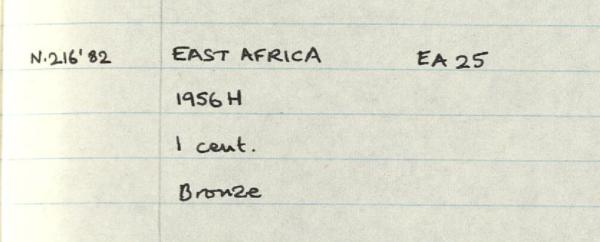 N.216'82 EAST AFRICA EA 25
1956 H
1 cent.
Bronze